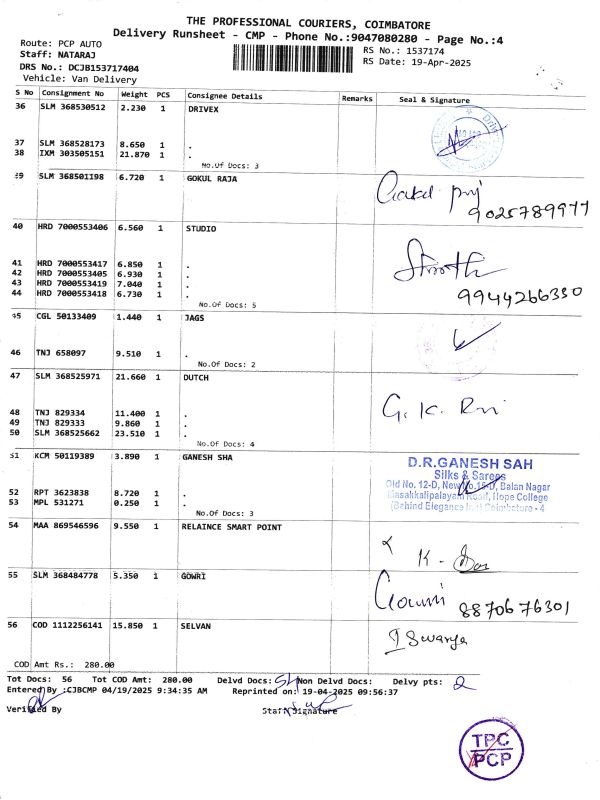 THE PROFESSIONAL COURIERS, COIMBATORE
Delivery Runsheet - CMP - Phone No.:9047080280 - Page No.:4
Route: PCP AUTO
RS No.: 1537174
Staff: NATARAJ
RS Date: 19-Apr-2025
DRS No.: DCJB153717404
Vehicle: Van Delivery
S No Consignment No Weight PCS Consignee Details Remarks Seal & Signature
36 SLM 368530512 2.230 1 DRIVEX
37 SLM 368528173 8.650 1 .
38 IXM 303505151 21.870 1 .
No.Of Docs: 3
39 SLM 368501198 6.720 1 GOKUL RAJA
9025789977
40 HRD 7000553406 6.560 1 STUDIO
41 HRD 7000553417 6.850 1 .
42 HRD 7000553405 6.930 1 .
43 HRD 7000553419 7.040 1 .
44 HRD 7000553418 6.730 1 .
9944266330
No.Of Docs: 5
45 CGL 50133409 1.440 1 JAGS
46 TNJ 658097 9.510 1 .
No.Of Docs: 2
47 SLM 368525971 21.660 1 DUTCH
48 TNJ 829334 11.400 1 .
49 TNJ 829333 9.860 1 .
50 SLM 368525662 23.510 1 .
No.Of Docs: 4
51 KCM 50119389 3.890 1 GANESH SHA
D.R.GANESH SAH
Silks & Sarees
Old No. 12-D, New No.15-D, Balan Nagar
Masakkalipalayam Road, Hope College
(Behind Elegance Inn) Coimbatore - 4
52 RPT 3623838 8.720 1 .
53 MPL 531271 0.250 1 .
No.Of Docs: 3
54 MAA 869546596 9.550 1 RELAINCE SMART POINT
55 SLM 368484778 5.350 1 GOWRI
Gowri 8870676301
56 COD 1112256141 15.850 1 SELVAN
COD Amt Rs.: 280.00
Tot Docs: 56 Tot COD Amt: 280.00 Delvd Docs: Non Delvd Docs: Delvy pts: 2
Entered By :CJBCMP 04/19/2025 9:34:35 AM Reprinted on: 19-04-2025 09:56:37
Verified By Staff Signature
TPC
PCP